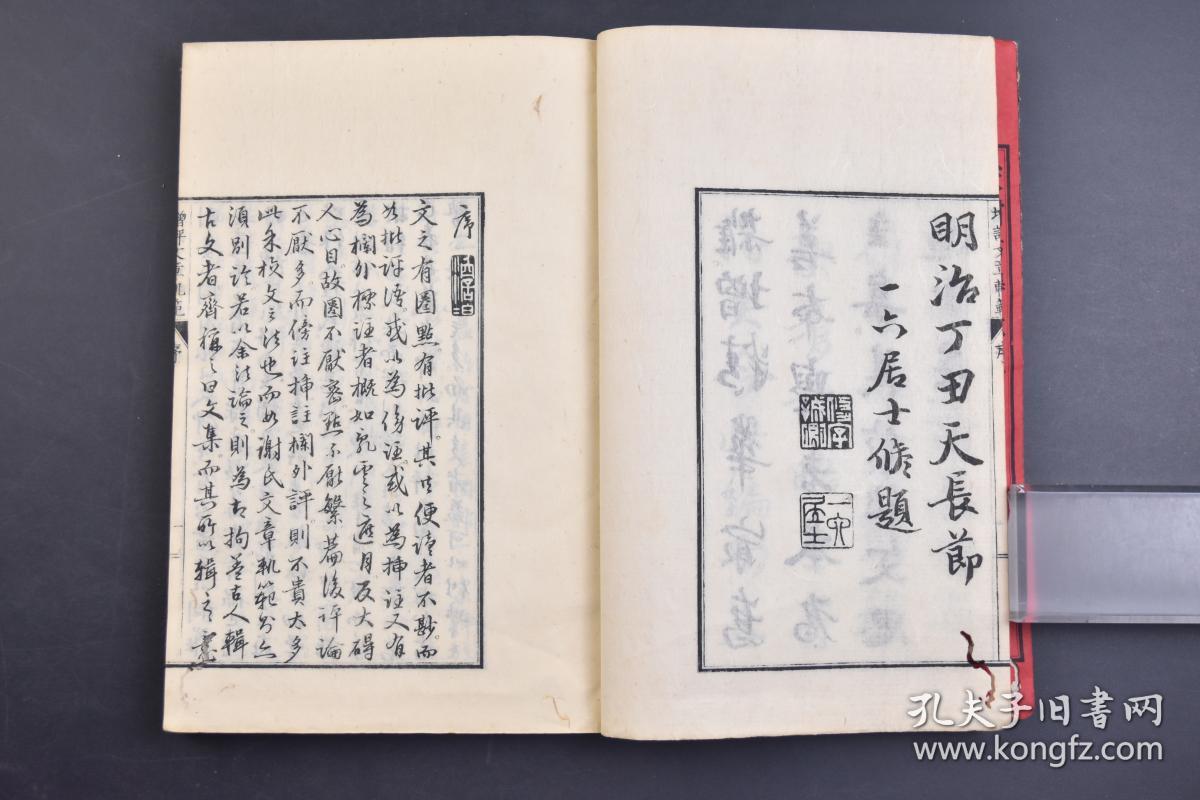 明治丁丑天長節
一六居士脩題
修字誠卿
一六居士
增評文章軌範 序
序
文之有圈點有批評。其於便讀者不尠。而
如批評語或以為傍註。或以為插註又有
為欄外標註者概如亂雲之遮月反大碍
人心目。故圈不厭密點不厭繁篇後評論
不厭多。而傍註插註欄外評則不貴太多
此余校文之法也而如謝氏文章軌範則亦
須別論若以余法論之則為古拘蓋古人輯
古文者齊稱之曰文集而其所以輯之意
增評文章軌範 序
孔夫子旧书网
www.kongfz.com